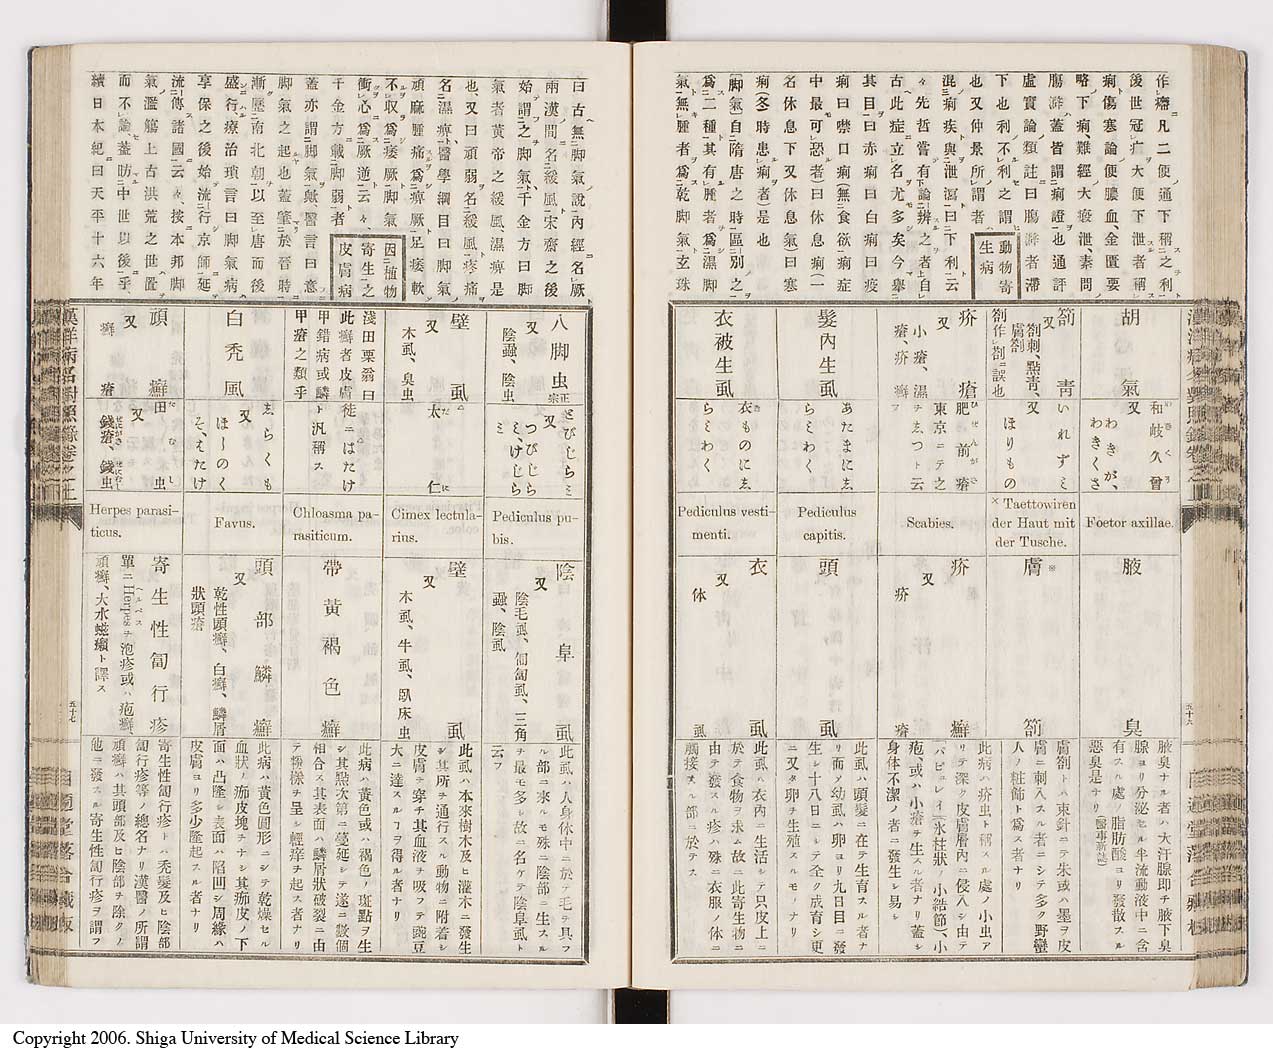 作㆑癉凡二便通下稱㆓之利㆒
後世冠㆑疒大便下泄者稱㆑
痢傷寒論便膿血、金匱要
略下痢、難經大瘕泄、素問
腸澼蓋皆謂㆓痢證㆒也通評
虛實論類註曰腸澼者滯
下也利不㆑利之謂
也又仲景所㆑謂者
混㆓痢疾與㆓泄瀉㆒曰㆓下利㆒云
々先哲嘗有㆓論㆑辨之者㆒自㆑
古此症立㆑名尤多矣今擧㆓
其目㆒曰赤痢曰白痢曰疫
痢曰噤口痢(無㆓食欲痢症
中最モ可㆑恐者)曰休息痢(一
名休息下又休息氣)曰寒
痢(冬時患㆑痢者)是也
〔脚氣〕自㆓隋唐之時㆒區㆓別之㆒
爲㆓二種㆒其有㆑腫者爲㆓濕脚
氣㆒無㆑腫者爲㆓乾脚氣㆒玄珠
動物寄
生病
胡氣
和岐久曾
又
わきが、
わきくさ
Foetor axillae.
腋臭
腋臭ナル者ハ大汗腺即チ腋下臭
腺ヨリ分泌セル半流動液中ニ含
有スル處ノ脂肪酸ヨリ發散スル
惡臭是ナリ(醫事新誌)
箚靑
又
箚刺、點靑、
膚箚
箚作㆑劄ニ誤也
いれずミ
又
ほりもの
×Taettowiren
der Haut mit
der Tusche.
膚箚
膚劄トハ束針ニテ朱或ハ墨ヲ皮
膚ニ刺入スル者ニシテ多ク野蠻
人ノ粧飾ト爲ス者ナリ
疥瘡
又
小瘡、濕
瘡、疥癬
肥前瘡
東京ニテ之
ヲゑつト云フ
Scabies.
疥癬
又
疥瘡
此病ハ疥虫ト稱スル處ノ小虫ア
リテ深ク皮膚層内ニ侵入シ由テ
小結節、小
疱、或ハ小瘡ヲ生スル者ナリ蓋シ
身体不潔ノ者ニ發生シ易シ
髮內生虱
あたまにゑ
らミわく
Pediculus
capitis.
頭虱
此虱ハ頭髮ニ在テ生育スル者ナ
リ而ノ幼虱ハ卵ヨリ九日目ニ發
生シ十八日ニシテ全ク成育シ更
ニ又タ卵ヲ生殖スルモノナリ
衣被生虱
衣ものにゑ
らミわく
Pediculus vesti-
menti.
衣虱
又
体虱
此虱ハ衣內ニ生活シテ只皮上ニ
於テ食物ヲ求ム故ニ此寄生物ニ
由テ發スル疹ハ殊ニ衣服ノ体ニ
觸接スル部ニ於テス
五十六
曰古無㆓脚氣說㆒內經名㆑厥
兩漢間名㆓緩風㆒宋齋之後
始謂㆓之脚氣㆒、千金方曰脚
氣者黃帝之緩風濕痺是
也、又曰頑弱名㆓緩風㆒疼痛
名㆓濕痺㆒、醫學綱目曰脚氣
頑麻腫痛爲㆓痺厥㆒足痿軟
不㆑収爲㆓痿厥㆒脚氣
衝㆑心爲㆓厥逆㆒云々、
千金方載㆓脚弱㆒者
蓋亦謂㆓脚氣㆒歟、醫言曰意
脚氣之起也蓋肇㆓於晉時㆒
漸歷㆓南北朝㆒以至㆑唐而後
盛行、療治瑣言曰脚氣病
享保之後始流㆓行京師㆒延
流㆓傳諸國㆒云々、按本邦脚
氣濫觴上古洪荒之世置
而不㆑論蓋昉㆓中世以後㆒乎、
續日本紀曰天平十六年
因㆓植物
寄生㆒之
皮膚病
八脚虫
又
陰蝨、陰虫
さびじらミ
又
つびじら
ミ、けじら
ミ
Pediculus pu-
bis.
陰阜虱
又
陰毛虱、匍匐虱、三角
蝨、陰虱
此虱ハ人身体中ニ於テ毛ヲ具フ
ル部ニ來ルモ殊ニ陰部ニ生スル
ヲ最モ多シ故ニ名ケテ陰阜虱ト
云フ
壁虱
又
木虱、臭虫
太仁
Cimex lectula-
rius.
壁虱
又
木虱、牛虱、臥床虫
此虱ハ本來樹木及ヒ灌木ニ發生
シ其所ヲ通行スル動物ニ附着シ
皮膚ヲ穿チ其血液ヲ吸フテ豌豆
大ニ達スルヿヲ得ル者ナリ
淺田栗翁曰
此癬者皮膚
甲錯病或鱗
甲瘡之類乎
徒ニはたけ
ト汎稱ス
Chloasma pa-
rasiticum.
帶黃褐色癬
此病ハ黃色或ハ褐色ノ斑點ヲ生
シ其點次第ニ蔓延シテ遂ニ數個
相合ス其表面ハ鱗屑狀破裂ニ由
テ糠樣ヲ呈シ輕痒ヲ起ス者ナリ
白禿風
ゑらくも
又
ほ一のく
そ、えたけ
Favus.
頭部鱗癬
又
乾性頭癬、白癬、鱗屑
狀頭瘡
此病ハ黃色圓形ニシテ乾燥セル
血狀ノ痂皮塊ヲナシ其痂皮ノ下
面ハ凸隆シ表面ハ陷凹シ周緣ハ
皮膚ヨリ多少隆起スル者ナリ
頑癬
又
癬瘡
田虫
又
錢瘡、錢虫
Herpes parasi-
ticus.
寄生性匐行疹
單ニHerpesヲ泡疹或ハ疱癬、
頑癬、大水蠟癩ト譯ス
寄生性匐行疹トハ禿髮及ヒ陰部
匐行疹等ノ總名ナリ漢醫ノ所謂
頑癬ハ其頭部及ヒ陰部ヲ除クノ
他ニ發スル寄生性匐行疹ヲ謂フ
五十七
Copyright 2006. Shiga University of Medical Science Library